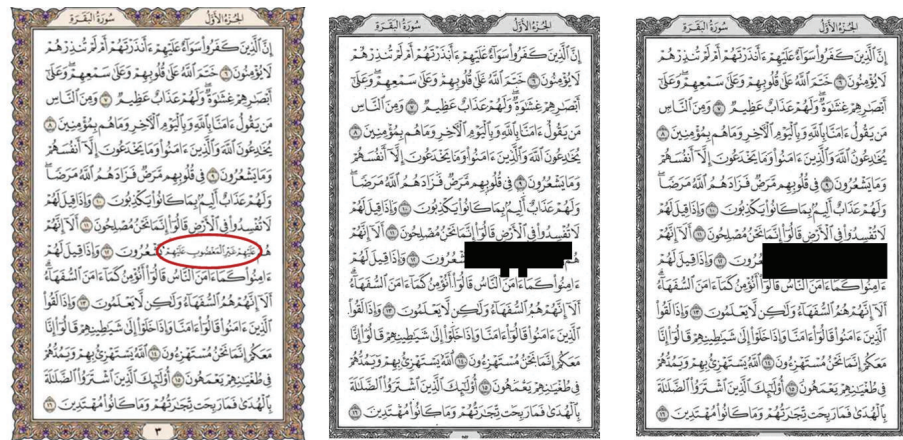 الجُزْءُ الأَوَّلُ سُورَةُ البَقَرَةِ
إِنَّ ٱلَّذِينَ كَفَرُوا۟ سَوَآءٌ عَلَيْهِمْ ءَأَنذَرْتَهُمْ أَمْ لَمْ تُنذِرْهُمْ
لَا يُؤْمِنُونَ ٦ خَتَمَ ٱللَّهُ عَلَىٰ قُلُوبِهِمْ وَعَلَىٰ سَمْعِهِمْ ۖ وَعَلَىٰٓ
أَبْصَٰرِهِمْ غِشَٰوَةٌ ۖ وَلَهُمْ عَذَابٌ عَظِيمٌ ٧ وَمِنَ ٱلنَّاسِ
مَن يَقُولُ ءَامَنَّا بِٱللَّهِ وَبِٱلْيَوْمِ ٱلْءَاخِرِ وَمَا هُم بِمُؤْمِنِينَ ٨
يُخَٰدِعُونَ ٱللَّهَ وَٱلَّذِينَ ءَامَنُوا۟ وَمَا يَخْدَعُونَ إِلَّآ أَنفُسَهُمْ
وَمَا يَشْعُرُونَ ٩ فِى قُلُوبِهِم مَّرَضٌ فَزَادَهُمُ ٱللَّهُ مَرَضًا ۖ
وَلَهُمْ عَذَابٌ أَلِيمٌۢ بِمَا كَانُوا۟ يَكْذِبُونَ ١٠ وَإِذَا قِيلَ لَهُمْ
لَا تُفْسِدُوا۟ فِى ٱلْأَرْضِ قَالُوٓا۟ إِنَّمَا نَحْنُ مُصْلِحُونَ ١١ أَلَآ إِنَّهُمْ
هُـ عَلَيْهِمْ غَيْرِ الْمَغْضُوبِ عَلَيْهِمْ شْعُرُونَ ١٢ وَإِذَا قِيلَ لَهُمْ
ءَامِنُوا۟ كَمَآ ءَامَنَ ٱلنَّاسُ قَالُوٓا۟ أَنُؤْمِنُ كَمَآ ءَامَنَ ٱلسُّفَهَآءُ ۗ
أَلَآ إِنَّهُمْ هُمُ ٱلسُّفَهَآءُ وَلَٰكِن لَّا يَعْلَمُونَ ١٣ وَإِذَا لَقُوا۟
ٱلَّذِينَ ءَامَنُوا۟ قَالُوٓا۟ ءَامَنَّا وَإِذَا خَلَوْا۟ إِلَىٰ شَيَٰطِينِهِمْ قَالُوٓا۟ إِنَّا
مَعَكُمْ إِنَّمَا نَحْنُ مُسْتَهْزِءُونَ ١٤ ٱللَّهُ يَسْتَهْزِئُ بِهِمْ وَيَمُدُّهُمْ
فِى طُغْيَٰنِهِمْ يَعْمَهُونَ ١٥ أُو۟لَٰٓئِكَ ٱلَّذِينَ ٱشْتَرَوُا۟ ٱلضَّلَٰلَةَ
بِٱلْهُدَىٰ فَمَا رَبِحَت تِّجَٰرَتُهُمْ وَمَا كَانُوا۟ مُهْتَدِينَ ١٦
٣
الجُزْءُ الأَوَّلُ سُورَةُ البَقَرَةِ
إِنَّ ٱلَّذِينَ كَفَرُوا۟ سَوَآءٌ عَلَيْهِمْ ءَأَنذَرْتَهُمْ أَمْ لَمْ تُنذِرْهُمْ
لَا يُؤْمِنُونَ ٦ خَتَمَ ٱللَّهُ عَلَىٰ قُلُوبِهِمْ وَعَلَىٰ سَمْعِهِمْ ۖ وَعَلَىٰٓ
أَبْصَٰرِهِمْ غِشَٰوَةٌ ۖ وَلَهُمْ عَذَابٌ عَظِيمٌ ٧ وَمِنَ ٱلنَّاسِ
مَن يَقُولُ ءَامَنَّا بِٱللَّهِ وَبِٱلْيَوْمِ ٱلْءَاخِرِ وَمَا هُم بِمُؤْمِنِينَ ٨
يُخَٰدِعُونَ ٱللَّهَ وَٱلَّذِينَ ءَامَنُوا۟ وَمَا يَخْدَعُونَ إِلَّآ أَنفُسَهُمْ
وَمَا يَشْعُرُونَ ٩ فِى قُلُوبِهِم مَّرَضٌ فَزَادَهُمُ ٱللَّهُ مَرَضًا ۖ
وَلَهُمْ عَذَابٌ أَلِيمٌۢ بِمَا كَانُوا۟ يَكْذِبُونَ ١٠ وَإِذَا قِيلَ لَهُمْ
لَا تُفْسِدُوا۟ فِى ٱلْأَرْضِ قَالُوٓا۟ إِنَّمَا نَحْنُ مُصْلِحُونَ ١١ أَلَآ إِنَّهُمْ
هُم عُرُونَ ١٢ وَإِذَا قِيلَ لَهُمْ
ءَامِنُوا۟ كَمَآ ءَامَنَ ٱلنَّاسُ قَالُوٓا۟ أَنُؤْمِنُ كَمَآ ءَامَنَ ٱلسُّفَهَآءُ ۗ
أَلَآ إِنَّهُمْ هُمُ ٱلسُّفَهَآءُ وَلَٰكِن لَّا يَعْلَمُونَ ١٣ وَإِذَا لَقُوا۟
ٱلَّذِينَ ءَامَنُوا۟ قَالُوٓا۟ ءَامَنَّا وَإِذَا خَلَوْا۟ إِلَىٰ شَيَٰطِينِهِمْ قَالُوٓا۟ إِنَّا
مَعَكُمْ إِنَّمَا نَحْنُ مُسْتَهْزِءُونَ ١٤ ٱللَّهُ يَسْتَهْزِئُ بِهِمْ وَيَمُدُّهُمْ
فِى طُغْيَٰنِهِمْ يَعْمَهُونَ ١٥ أُو۟لَٰٓئِكَ ٱلَّذِينَ ٱشْتَرَوُا۟ ٱلضَّلَٰلَةَ
بِٱلْهُدَىٰ فَمَا رَبِحَت تِّجَٰرَتُهُمْ وَمَا كَانُوا۟ مُهْتَدِينَ ١٦
الجُزْءُ الأَوَّلُ سُورَةُ البَقَرَةِ
إِنَّ ٱلَّذِينَ كَفَرُوا۟ سَوَآءٌ عَلَيْهِمْ ءَأَنذَرْتَهُمْ أَمْ لَمْ تُنذِرْهُمْ
لَا يُؤْمِنُونَ ٦ خَتَمَ ٱللَّهُ عَلَىٰ قُلُوبِهِمْ وَعَلَىٰ سَمْعِهِمْ ۖ وَعَلَىٰٓ
أَبْصَٰرِهِمْ غِشَٰوَةٌ ۖ وَلَهُمْ عَذَابٌ عَظِيمٌ ٧ وَمِنَ ٱلنَّاسِ
مَن يَقُولُ ءَامَنَّا بِٱللَّهِ وَبِٱلْيَوْمِ ٱلْءَاخِرِ وَمَا هُم بِمُؤْمِنِينَ ٨
يُخَٰدِعُونَ ٱللَّهَ وَٱلَّذِينَ ءَامَنُوا۟ وَمَا يَخْدَعُونَ إِلَّآ أَنفُسَهُمْ
وَمَا يَشْعُرُونَ ٩ فِى قُلُوبِهِم مَّرَضٌ فَزَادَهُمُ ٱللَّهُ مَرَضًا ۖ
وَلَهُمْ عَذَابٌ أَلِيمٌۢ بِمَا كَانُوا۟ يَكْذِبُونَ ١٠ وَإِذَا قِيلَ لَهُمْ
لَا تُفْسِدُوا۟ فِى ٱلْأَرْضِ قَالُوٓا۟ إِنَّمَا نَحْنُ مُصْلِحُونَ ١١ أَلَآ إِنَّهُمْ
عُرُونَ ١٢ وَإِذَا قِيلَ لَهُمْ
ءَامِنُوا۟ كَمَآ ءَامَنَ ٱلنَّاسُ قَالُوٓا۟ أَنُؤْمِنُ كَمَآ ءَامَنَ ٱلسُّفَهَآءُ ۗ
أَلَآ إِنَّهُمْ هُمُ ٱلسُّفَهَآءُ وَلَٰكِن لَّا يَعْلَمُونَ ١٣ وَإِذَا لَقُوا۟
ٱلَّذِينَ ءَامَنُوا۟ قَالُوٓا۟ ءَامَنَّا وَإِذَا خَلَوْا۟ إِلَىٰ شَيَٰطِينِهِمْ قَالُوٓا۟ إِنَّا
مَعَكُمْ إِنَّمَا نَحْنُ مُسْتَهْزِءُونَ ١٤ ٱللَّهُ يَسْتَهْزِئُ بِهِمْ وَيَمُدُّهُمْ
فِى طُغْيَٰنِهِمْ يَعْمَهُونَ ١٥ أُو۟لَٰٓئِكَ ٱلَّذِينَ ٱشْتَرَوُا۟ ٱلضَّلَٰلَةَ
بِٱلْهُدَىٰ فَمَا رَبِحَت تِّجَٰرَتُهُمْ وَمَا كَانُوا۟ مُهْتَدِينَ ١٦